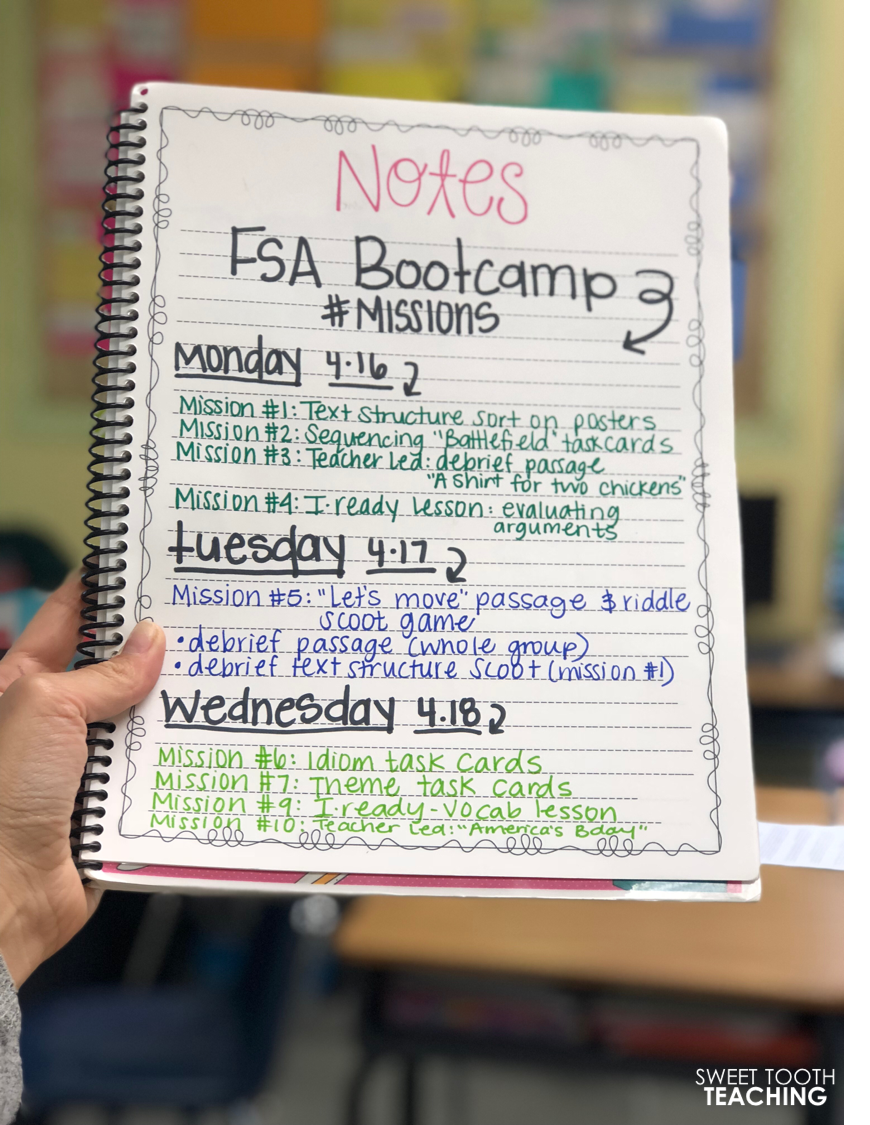 Notes
FSA Bootcamp
#MISSIONS
Monday 4.16
Mission #1: Text structure sort on posters
Mission #2: Sequencing "Battlefield" taskcards
Mission #3: Teacher Led: debrief passage
"A shirt for two chickens"
Mission #4: I-ready Lesson: evaluating
arguments
tuesday 4.17
Mission #5: "Let's move" passage & riddle
scoot game
• debrief passage (whole group)
• debrief text structure scoot (mission #1)
Wednesday 4.18
Mission #6: Idiom task cards
Mission #7: Theme task cards
Mission #9: I-ready-vocab lesson
Mission #10: Teacher Led: "America's Bday"
SWEET TOOTH
TEACHING